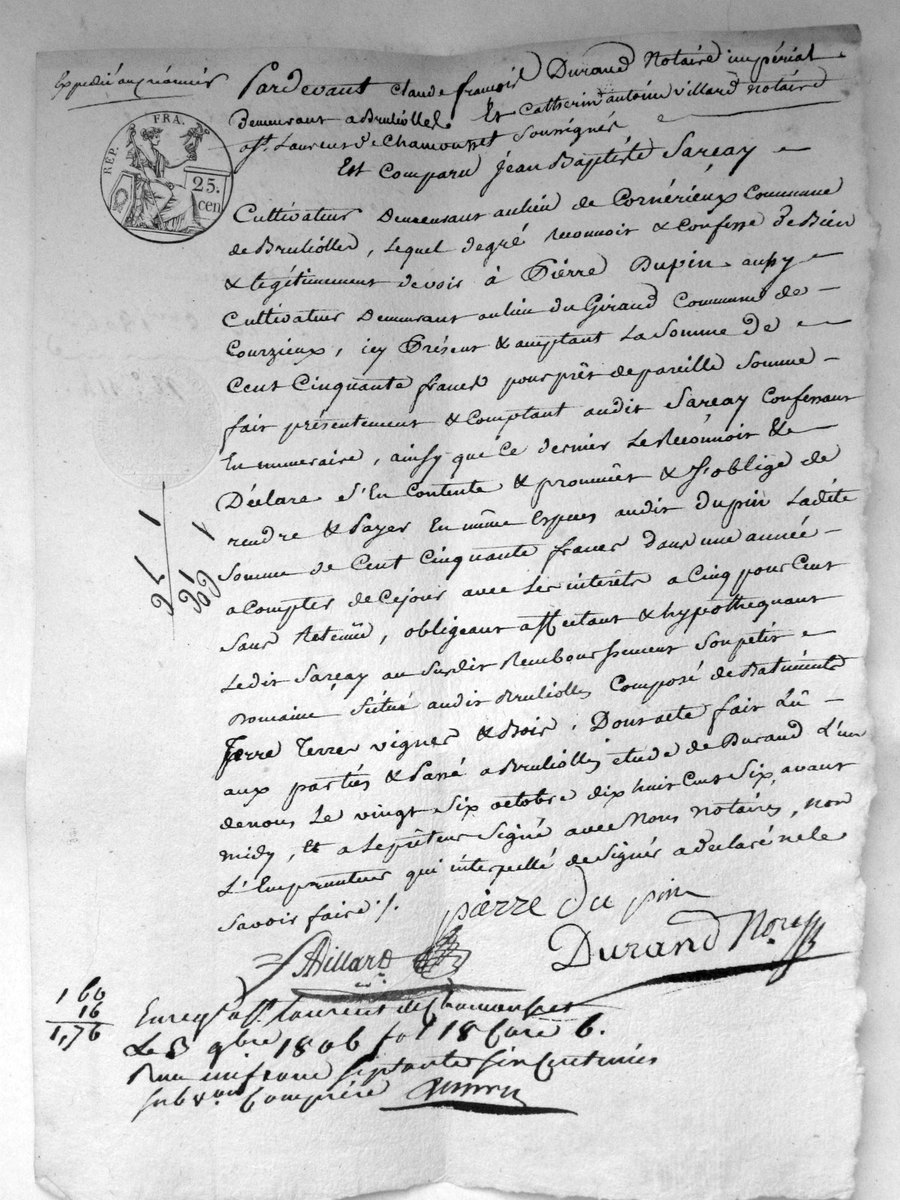 Expédié au créancier
REP. FRA.
25.
cen
Pardevant Claude françois Durand Notaire impérial
Demeurant a Brulliolles Et Catherin antoine Villard notaire
a St. Laurent de Chamousset Soussignés
Est Comparu Jean Baptiste Sarcay
Cultivateur Demeurant aulieu de Cornérieux Commune
de Brulliolles, Lequel degré reconnoit & Confesse de Bien
& légitimement devoir à Pierre Dupin aussy
Cultivateur Demeurant aulieu du Giraud Commune de
Courzieux, icy Présent & acceptant La Somme de
Cent Cinquante francs pour prêt de pareille Somme
fait présentement & Comptant audit Sarcay Confessant
En numeraire, ainsy que Ce dernier Le Reconnoit &
Déclare s'En Contente & promet & s'oblige de
rendre & Payer En même Especes audit dupin Ladite
Somme de Cent Cinquante francs dans une année
a Compter de Cejour avec Les intérêts a Cinq pour Cent
Sans Retenue, obligeant affectant & hypothequant
Ledit Sarcay au Susdit Remboursement Son petit
Domaine Scitué audit Brulliolles Composé de Batiments
Terres vignes & Bois. Dont acte fait Lû
aux parties & Passé a Brulliolles étude de Durand L'un
de nous Le vingt Six octobre dix huit Cent Six, avant
midy, Et a Le prêteur Signé avec Nous notaires, non
L'Emprunteur qui interpellé de Signer a déclaré ne le
Savoir faire ./.
pierre du pin
Villard
Durand Nore
1 60
16
1,76
Enreg a St. Laurent de Chamousset
Le 3 9bre 1806 fol 18 Case 6.
Reçu un franc septante six Centimes
subvon Comprise